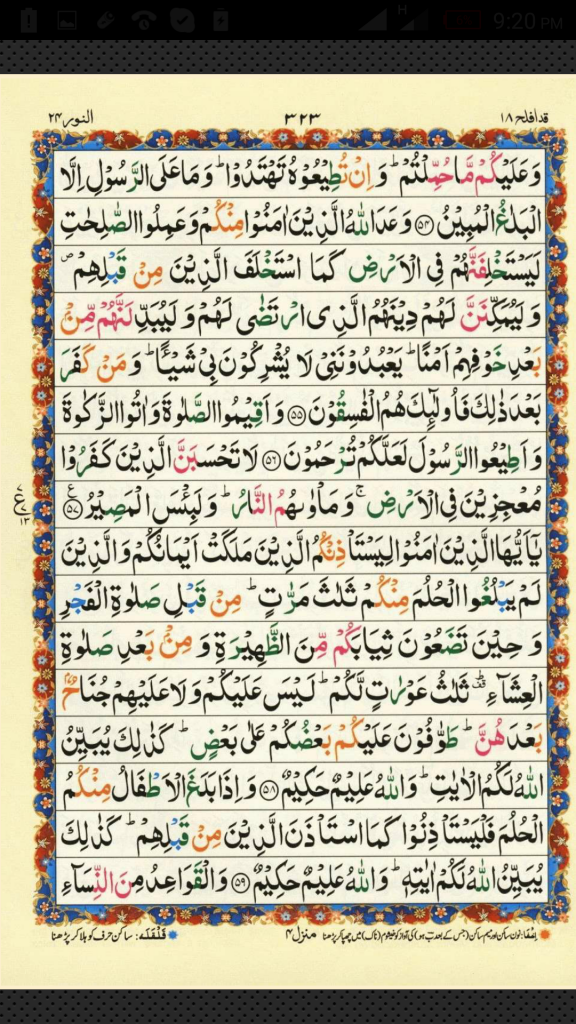 H 9:20 PM
قد افلح ١٨ ٣٢٣ النور ٢٤
وَعَلَيْكُمْ مَّا حُمِّلْتُمْ ؕ وَاِنْ تُطِيْعُوْهُ تَهْتَدُوْا ؕ وَمَا عَلَى الرَّسُوْلِ اِلَّا
الْبَلٰغُ الْمُبِيْنُ ﴿۵۴﴾ وَعَدَ اللّٰهُ الَّذِيْنَ اٰمَنُوْا مِنْكُمْ وَعَمِلُوا الصّٰلِحٰتِ
لَيَسْتَخْلِفَنَّهُمْ فِى الْاَرْضِ كَمَا اسْتَخْلَفَ الَّذِيْنَ مِنْ قَبْلِهِمْ ۪
وَلَيُمَكِّنَنَّ لَهُمْ دِيْنَهُمُ الَّذِى ارْتَضٰى لَهُمْ وَلَيُبَدِّلَنَّهُمْ مِّنْۢ
بَعْدِ خَوْفِهِمْ اَمْنًا ؕ يَعْبُدُوْنَنِىْ لَا يُشْرِكُوْنَ بِىْ شَيْـًٔا ؕ وَمَنْ كَفَرَ
بَعْدَ ذٰلِكَ فَاُولٰٓئِكَ هُمُ الْفٰسِقُوْنَ ﴿۵۵﴾ وَاَقِيْمُوا الصَّلٰوةَ وَاٰتُوا الزَّكٰوةَ
وَاَطِيْعُوا الرَّسُوْلَ لَعَلَّكُمْ تُرْحَمُوْنَ ﴿۵۶﴾ لَا تَحْسَبَنَّ الَّذِيْنَ كَفَرُوْا
مُعْجِزِيْنَ فِى الْاَرْضِ ۚ وَمَاْوٰىهُمُ النَّارُ ؕ وَلَبِئْسَ الْمَصِيْرُ ﴿۵۷﴾ ع ٧ ٧ ١٣
يٰٓاَيُّهَا الَّذِيْنَ اٰمَنُوْا لِيَسْتَاْذِنْكُمُ الَّذِيْنَ مَلَكَتْ اَيْمَانُكُمْ وَالَّذِيْنَ
لَمْ يَبْلُغُوا الْحُلُمَ مِنْكُمْ ثَلٰثَ مَرّٰتٍ ؕ مِنْ قَبْلِ صَلٰوةِ الْفَجْرِ
وَحِيْنَ تَضَعُوْنَ ثِيَابَكُمْ مِّنَ الظَّهِيْرَةِ وَمِنْۢ بَعْدِ صَلٰوةِ
الْعِشَآءِ ؕ ثَلٰثُ عَوْرٰتٍ لَّكُمْ ؕ لَيْسَ عَلَيْكُمْ وَلَا عَلَيْهِمْ جُنَاحٌۢ
بَعْدَهُنَّ ؕ طَوّٰفُوْنَ عَلَيْكُمْ بَعْضُكُمْ عَلٰى بَعْضٍ ؕ كَذٰلِكَ يُبَيِّنُ
اللّٰهُ لَكُمُ الْاٰيٰتِ ؕ وَاللّٰهُ عَلِيْمٌ حَكِيْمٌ ﴿۵۸﴾ وَاِذَا بَلَغَ الْاَطْفَالُ مِنْكُمُ
الْحُلُمَ فَلْيَسْتَاْذِنُوْا كَمَا اسْتَاْذَنَ الَّذِيْنَ مِنْ قَبْلِهِمْ ؕ كَذٰلِكَ
يُبَيِّنُ اللّٰهُ لَكُمْ اٰيٰتِهٖ ؕ وَاللّٰهُ عَلِيْمٌ حَكِيْمٌ ﴿۵۹﴾ وَالْقَوَاعِدُ مِنَ النِّسَآءِ
اِخفَا: نون ساکن اور میم ساکن (جس کے بعد ب ہو) کی آواز کو خیشوم (ناک) میں چھپا کر پڑھنا منزل ٤ قَلْقَلَہ: ساکن حرف کو ہلا کر پڑھنا